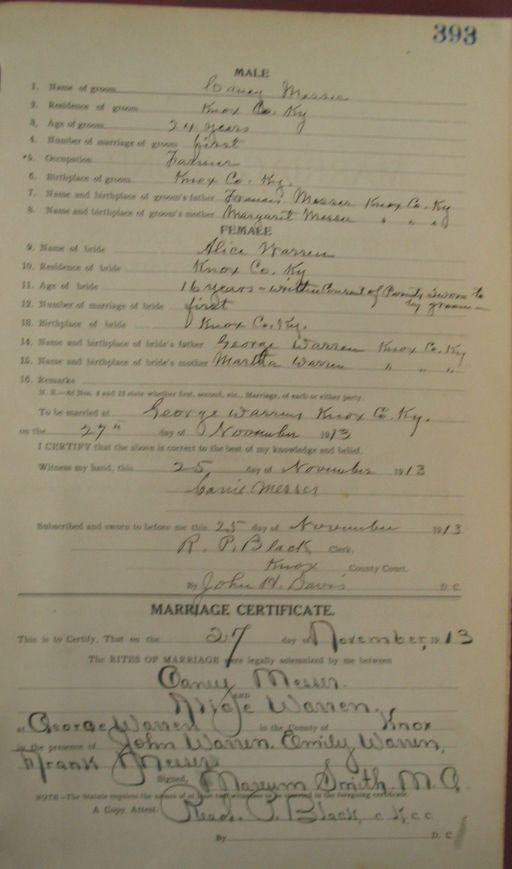 393
MALE
1. Name of groom Caney Messer
2. Residence of groom Knox Co. Ky
3. Age of groom 24 years
4. Number of marriage of groom first
5. Occupation Farmer
6. Birthplace of groom Knox Co. Ky.
7. Name and birthplace of groom's father Messer Knox Co. Ky
8. Name and birthplace of groom's mother Margaret Messer " " "
FEMALE
9. Name of bride Alice Warren
10. Residence of bride Knox Co. Ky
11. Age of bride 16 years - written Consent of Parents Sworn to
by groom -
12. Number of marriage of bride first
13. Birthplace of bride Knox Co. Ky.
14. Name and birthplace of bride's father George Warren Knox Co. Ky
15. Name and birthplace of bride's mother Martha Warren " " "
16. Remarks
N. B.—At Nos. 4 and 12 state whether first, second, etc., Marriage, of each or either party.
To be married at George Warrens Knox Co. Ky.
on the 27" day of November 1913
I CERTIFY that the above is correct to the best of my knowledge and belief.
Witness my hand, this 25 day of November 1913
Canie Messer
Subscribed and sworn to before me this 25 day of November 1913
R. P. Black Clerk,
Knox County Court.
By John H. Davis D. C.
MARRIAGE CERTIFICATE.
This is to Certify, That on the 27 day of November, 1913
The RITES OF MARRIAGE were legally solemnized by me between
Caney Messer.
AND
Warren.
at George Warren in the County of Knox
in the presence of John Warren. Emily Warren,
Frank Messer
Signed, Smith. M. G.
NOTE—The Statute requires the names of at least two witnesses to be inserted in the foregoing certificate.
A Copy Attest: Read. P. Black, C. K. C. C.
By D. C.